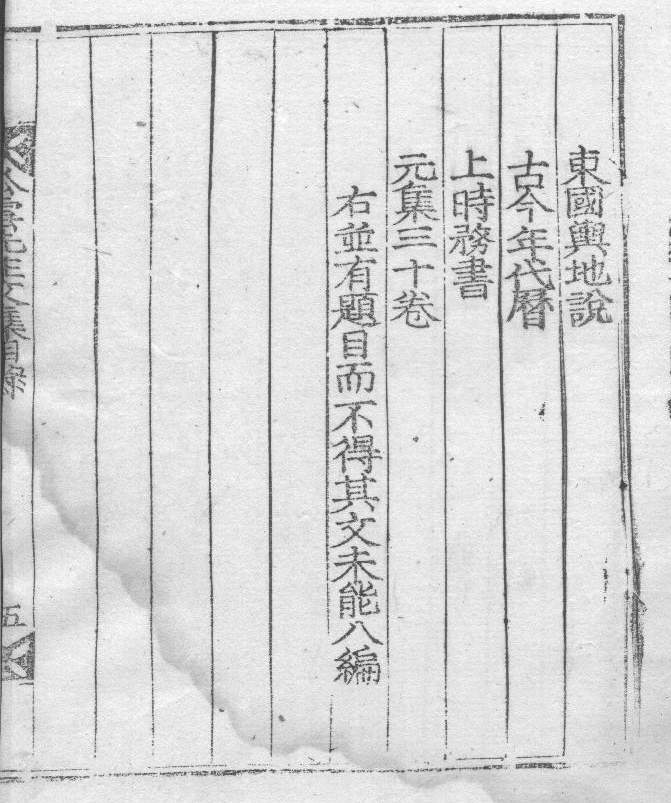 東國輿地說
古今年代曆
上時務書
元集三十卷
右並有題目而不得其文未能八編
先生文集目錄
五